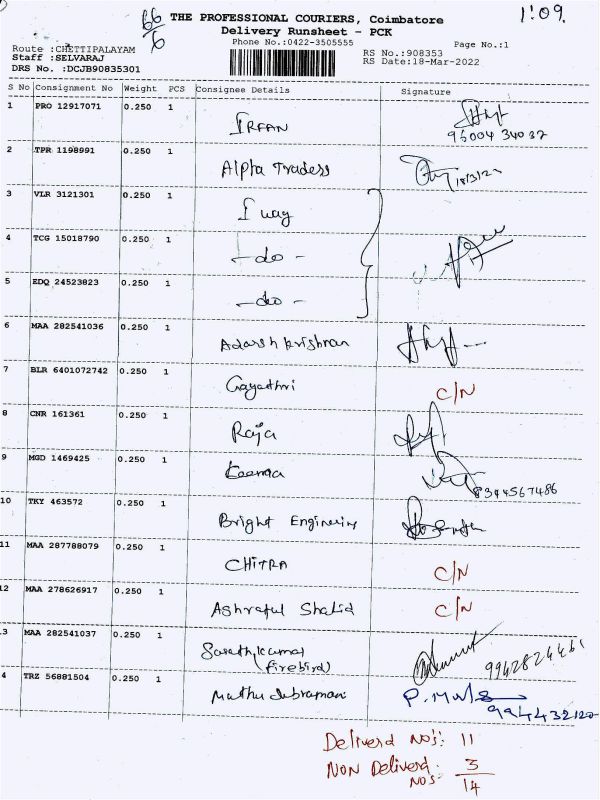 66/6
1:09.
THE PROFESSIONAL COURIERS, Coimbatore
Delivery Runsheet - PCK
Phone No.:0422-3505555
Page No.:1
Route :CHETTIPALAYAM
Staff :SELVARAJ
DRS No. :DCJB90835301
RS No.:908353
RS Date:18-Mar-2022
S No Consignment No Weight PCS Consignee Details Signature
1 PRO 12917071 0.250 1 IRFAN
95004 34032
2 TPR 1198991 0.250 1 Alpha Tradess 18/3/22
3 VLR 3121301 0.250 1 I way
4 TCG 15018790 0.250 1 -do-
5 EDQ 24523823 0.250 1 -do-
6 MAA 282541036 0.250 1 Adarsh krishnan
7 BLR 6401072742 0.250 1 Gayathri C/N
8 CNR 161361 0.250 1 Raja
9 MGD 1469425 0.250 1 8344567486
10 TKY 463572 0.250 1 Bright Enginering
11 MAA 287788079 0.250 1 CHITRA C/N
12 MAA 278626917 0.250 1 Ashraful Shahid C/N
3 MAA 282541037 0.250 1 Sarathkumar
(firebird) 9942824461
4 TRZ 56881504 0.250 1 Muthu Subramani P. Muthu
994432120
Deliverd No's: 11
NON Deliverd No's: 3
14